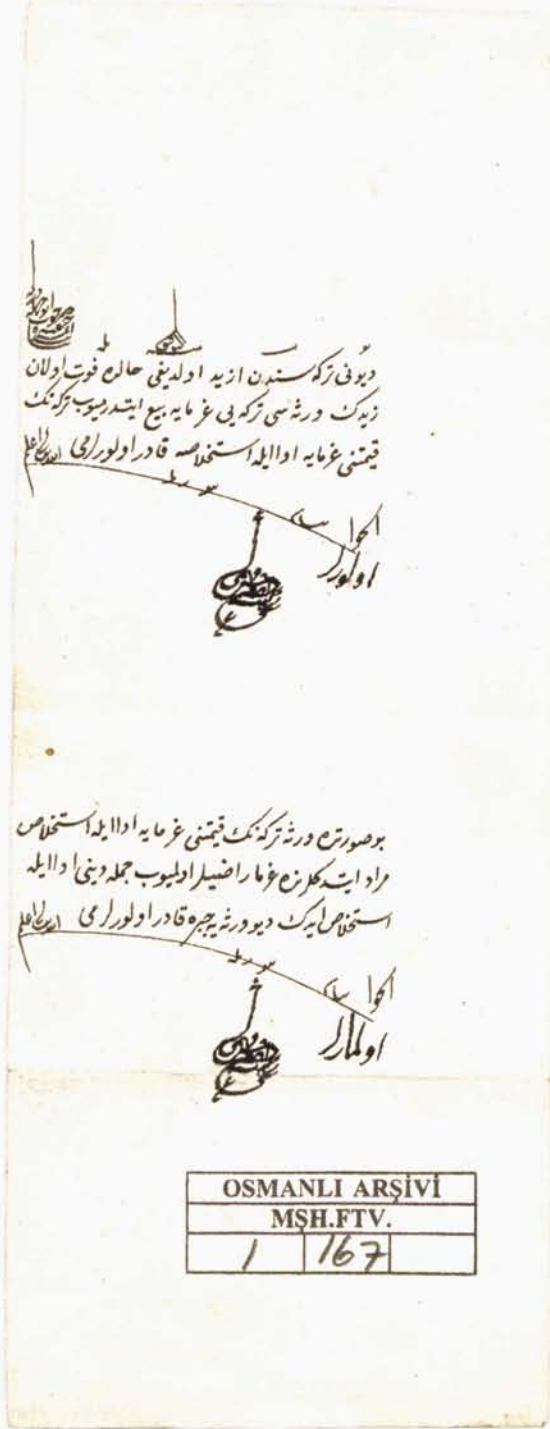 دیونی ترکه سندن ازید اولدیغی حالده فوت اولان
زیدك ورثه سی ترکه یی غرمایه بیع ایتدرمیوب ترکه نك
قیمتنی غرمایه ادا ایله استخلاصه قادر اولورلرمی
الجواب
اولورلر
بوصورتده ورثه ترکه نك قیمتنی غرمایه ادا ایله استخلاص
مراد ایتدکلرنده غرما راضیلر اولمیوب جمله دینی ادا ایله
استخلاص ایدك دیو ورثه یی جبره قادر اولورلرمی
الجواب
اولمازلر
OSMANLI ARŞİVİ
MŞH.FTV.
1 167